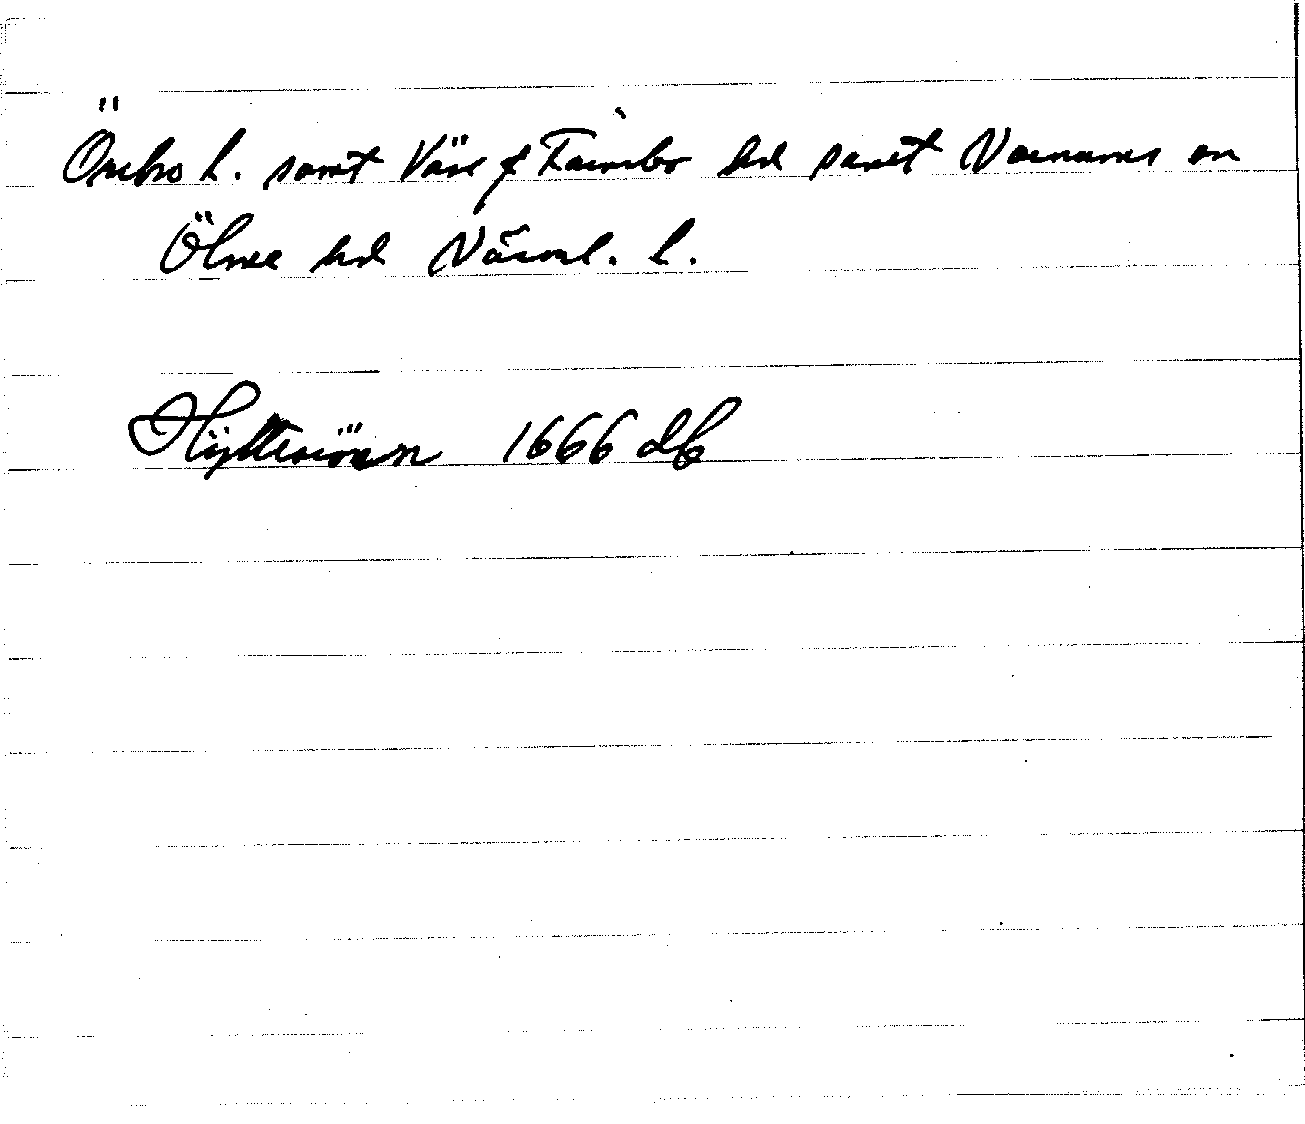 Örebro l. samt Väse o Färnebo hd samt Varnums sn
Ölme hd Värml. l.
Hyttesiöen 1666 db